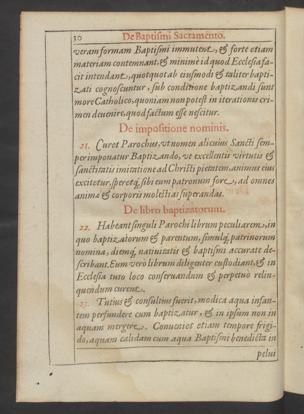 30 De Baptismi Sacramento.
veram formam Baptismi immutent, & forte etiam
materiam contemnant, & minimè id quod Ecclesia fa-
cit intendant, quotquot ab eiusmodi & taliter bapti-
zati cognoscuntur, sub conditione baptizandi sunt
more Catholico, quoniam non potest in iterationis cri-
men deuenire quod factum esse nescitur.
De impositione nominis.
21. Curet Parochus, vt nomen alicuius Sancti sem-
per imponatur Baptizando, vt excellentis virtutis &
sanctitatis imitatione ad Christi pietatem, animus eius
excitetur, speretq; sibi eum patronum fore, ad omnes
animæ & corporis molestias superandas.
De libro baptizatorum.
22. Habeant singuli Parochi librum peculiarem, in
quo baptizatorum & parentum, simulq; patrinorum
nomina, diemq; natiuitatis & baptismi accurate de-
scribant. Eum verò librum diligenter custodiant, & in
Ecclesia tuto loco conseruandum & perpetuo relin-
quendum curent.
23. Tutius & consultius fuerit, modica aqua infan-
tem perfundere cum baptizatur, & in ipsum non in
aquam mergere. Conuenies etiam tempore frigi-
do, aquam calidam cum aqua Baptismi benedicta in
pelui